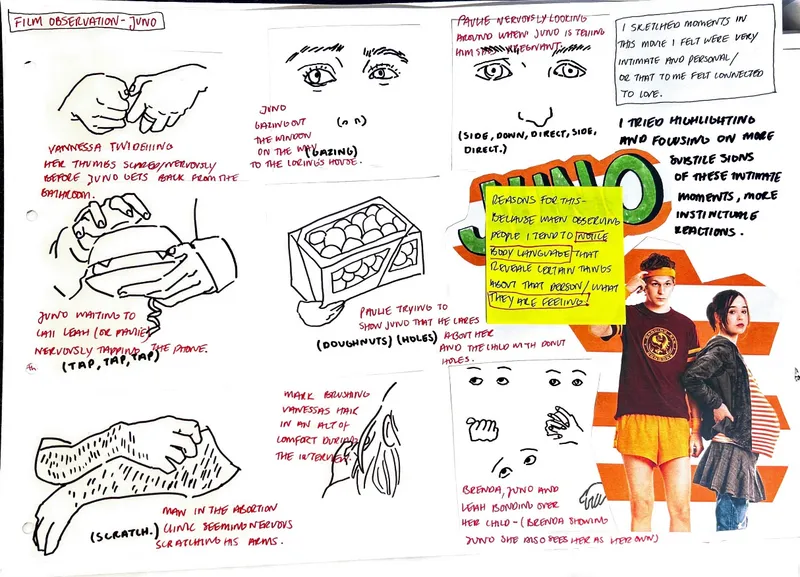 FILM OBSERVATION - JUNO
VANNESSA TWIDELLING
HER THUMBS SCARED/NERVOUSLY
BEFORE JUNO GETS BACK FROM THE
BATHROOM.
JUNO
GAZING OUT
THE WINDOW
ON THE WAY
TO THE LORING'S HOUSE.
(GAZING)
PAULIE NERVOUSLY LOOKING
AROUND WHEN JUNO IS TELLING
HIM SHES PREGNANT.
(SIDE, DOWN, DIRECT, SIDE,
DIRECT.)
I SKETCHED MOMENTS IN
THIS MOVIE I FELT WERE VERY
INTIMATE AND PERSONAL/
OR THAT TO ME FELT CONNECTED
TO LOVE.
I TRIED HIGHLIGHTING
AND FOCUSING ON MORE
SUBTILE SIGNS
OF THESE INTIMATE
MOMENTS, MORE
INSTINCTUAL
REACTIONS.
JUNO
REASONS FOR THIS-
BECAUSE WHEN OBSERVING
PEOPLE I TEND TO NOTICE
BODY LANGUAGE THAT
REVEALS CERTAIN THINGS
ABOUT THAT PERSON/WHAT
THEY ARE FEELING.
JUNO WAITING TO
CALL LEAH (OR PAULIE)
NERVOUSLY TAPPING THE PHONE.
(TAP, TAP, TAP)
PAULIE TRYING TO
SHOW JUNO THAT HE CARES
ABOUT HER
AND THE CHILD WITH DONUT
HOLES.
(DOUGHNUTS) (HOLES)
MAN IN THE ABORTION
CLINIC SEEMING NERVOUS
SCRATCHING HIS ARMS.
(SCRATCH.)
MARK BRUSHING
VANESSAS HAIR
IN AN ACT OF
COMFORT DURING
THE INTERVIEW.
BRENDA, JUNO AND
LEAH BONDING OVER
HER CHILD - (BRENDA SHOWING
JUNO SHE ALSO SEES HER AS HER OWN)